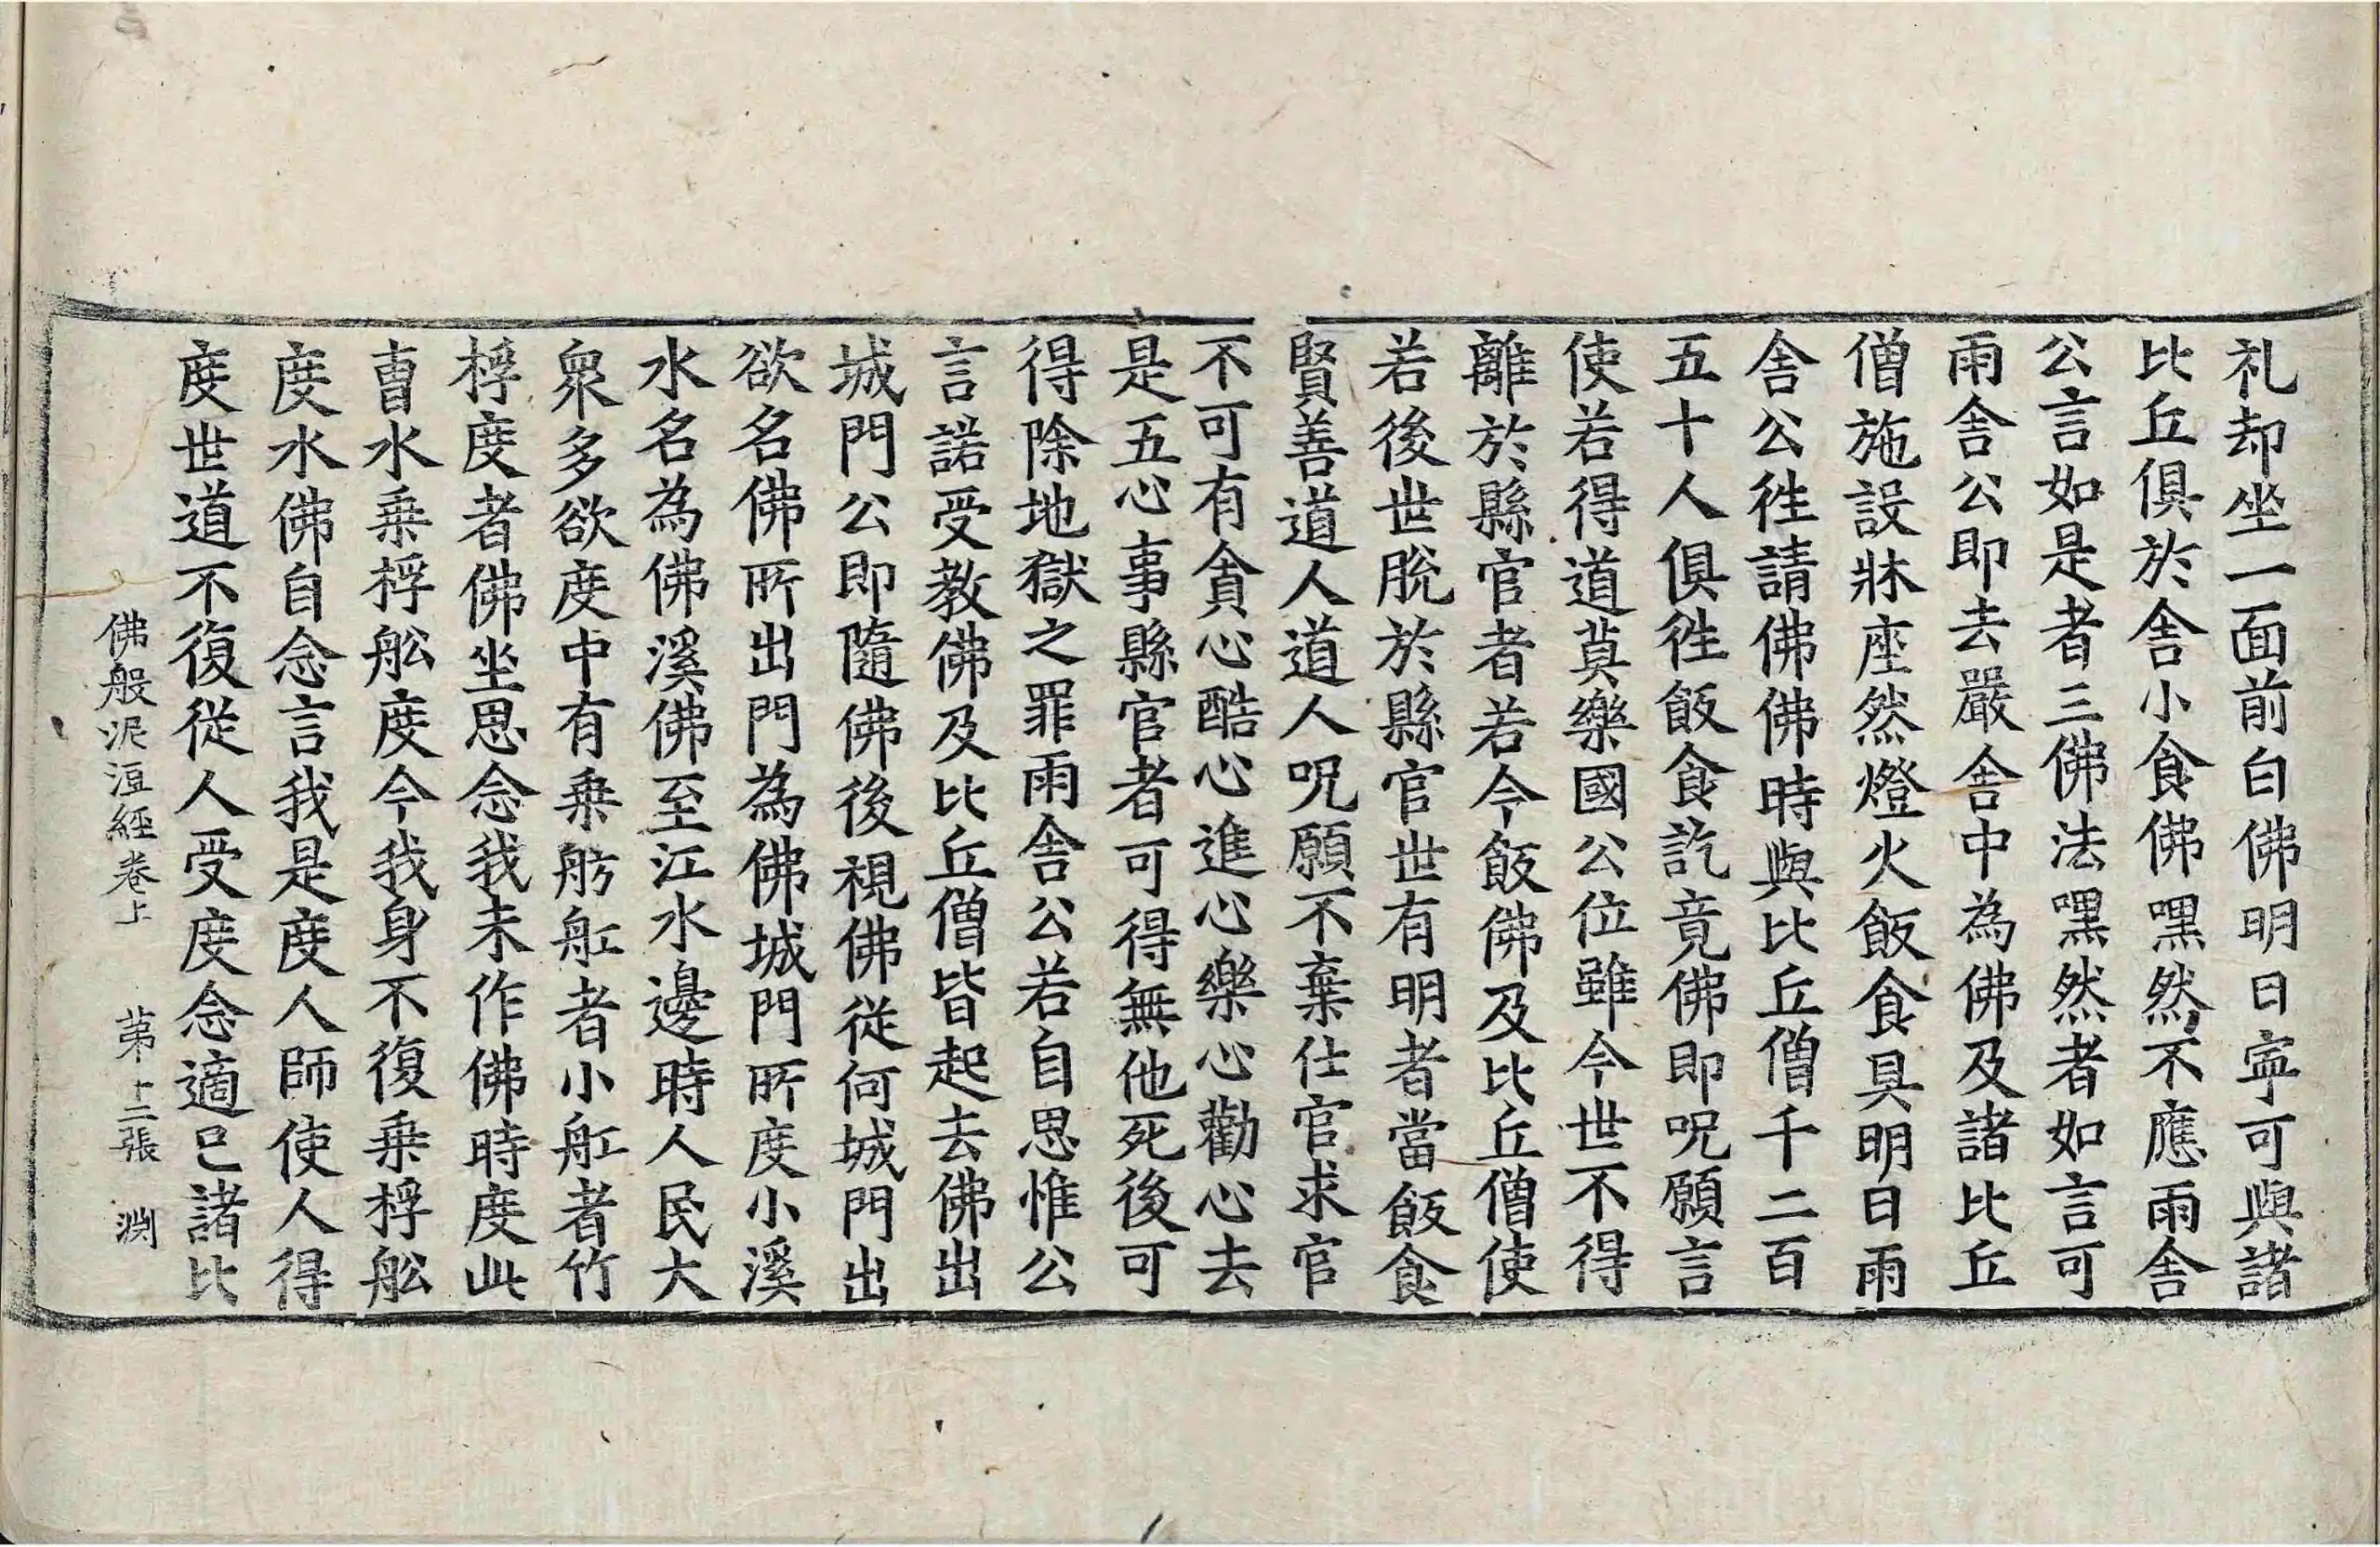 礼却坐一面前白佛明日寧可與諸
比丘俱於舎小食佛嘿然不應雨舎
公言如是者三佛法嘿然者如言可
雨舎公即去嚴舎中為佛及諸比丘
僧施設牀座然燈火飯食具明日雨
舎公徃請佛佛時與比丘僧千二百
五十人俱徃飯食訖竟佛即呪願言
使若得道莫樂國公位雖今世不得
離於縣官者若今飯佛及比丘僧使
若後世脫於縣官世有明者當飯食
賢善道人道人呪願不棄仕官求官
不可有貪心酷心進心樂心勸心去
是五心事縣官者可得無他死後可
得除地獄之罪雨舎公若自思惟公
言諾受教佛及比丘僧皆起去佛出
城門公即隨佛後視佛從何城門出
欲名佛所出門為佛城門所度小溪
水名為佛溪佛至江水邊時人民大
衆多欲度中有乗舫舡者小舡者竹
桴度者佛坐思念我未作佛時度此
曺水乗桴舩度今我身不復乗桴舩
度水佛自念言我是度人師使人得
度世道不復從人受度念適已諸比
佛般泥洹經卷上　第十二張　渕